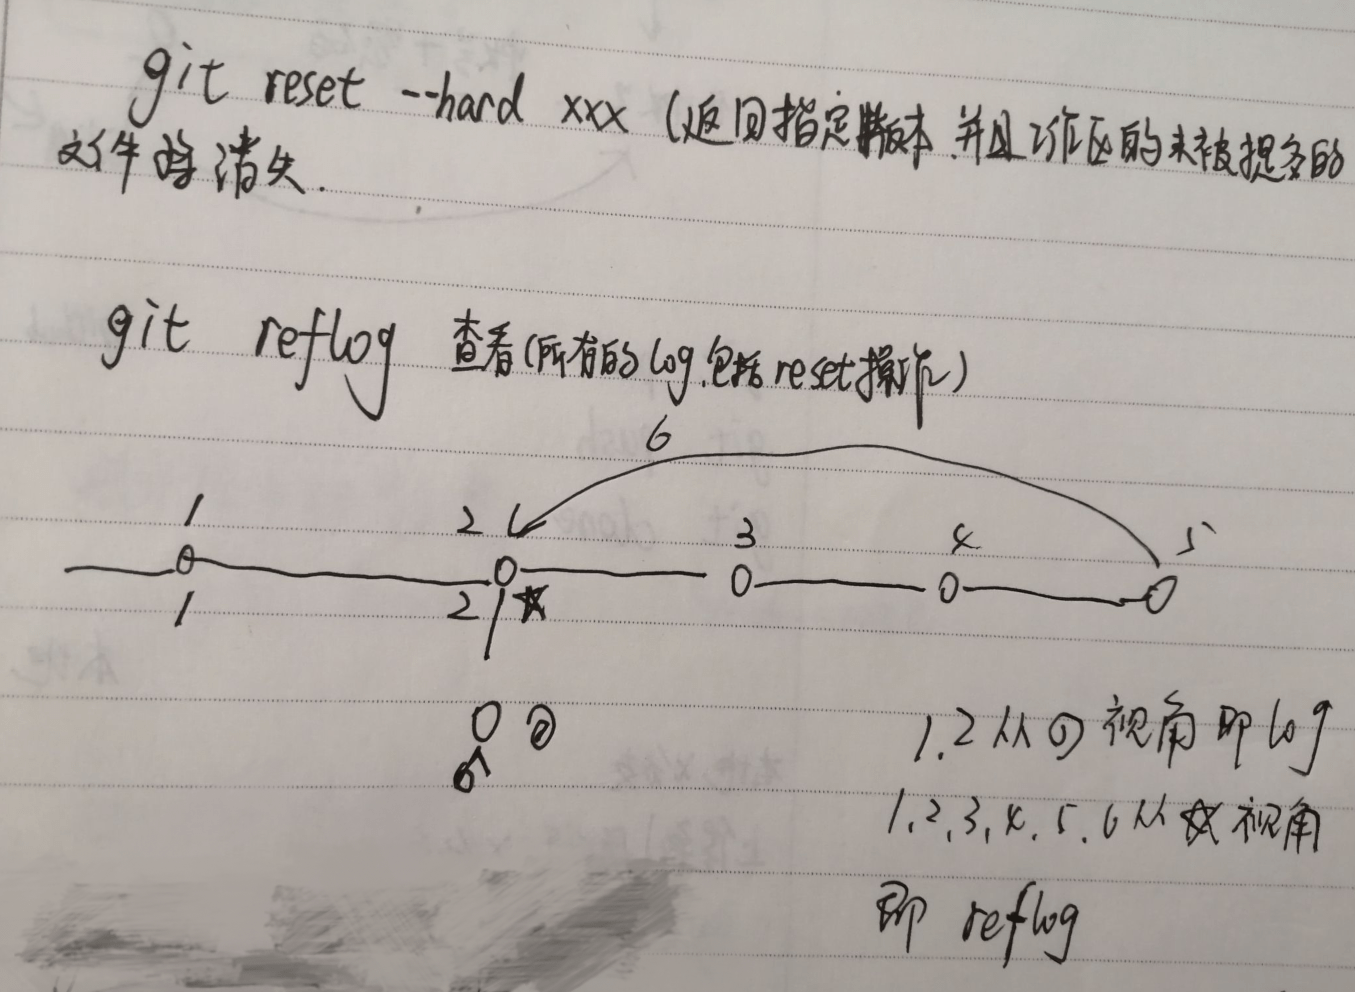 git reset --hard xxx (返回指定版本.并且工作区的未被提交的
文件将消失.
git reflog 查看(所有的log.包括reset操作)
6
1 2 3 4 5
1 2
1.2从 视角即log
1.2.3.4.5.6从☆视角
即 reflog